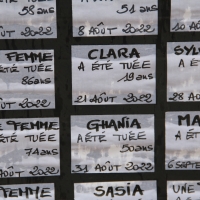 58ans
OÛT 2022
51 ans
8 AOÛT 2022
10 AO
FEMME
TUÉE
86ans
OÛT 2022
CLARA
A ÉTÉ TUÉE
19ans
21 AOÛT 2022
SYL
A É
28 AO
FEMME
TUÉE
74ans
OÛT 2022
GHANIA
A ÉTÉ TUÉE
50ans
31 AOÛT 2022
MA
A É
6 SEPTE
FEMME
SASIA
UNE